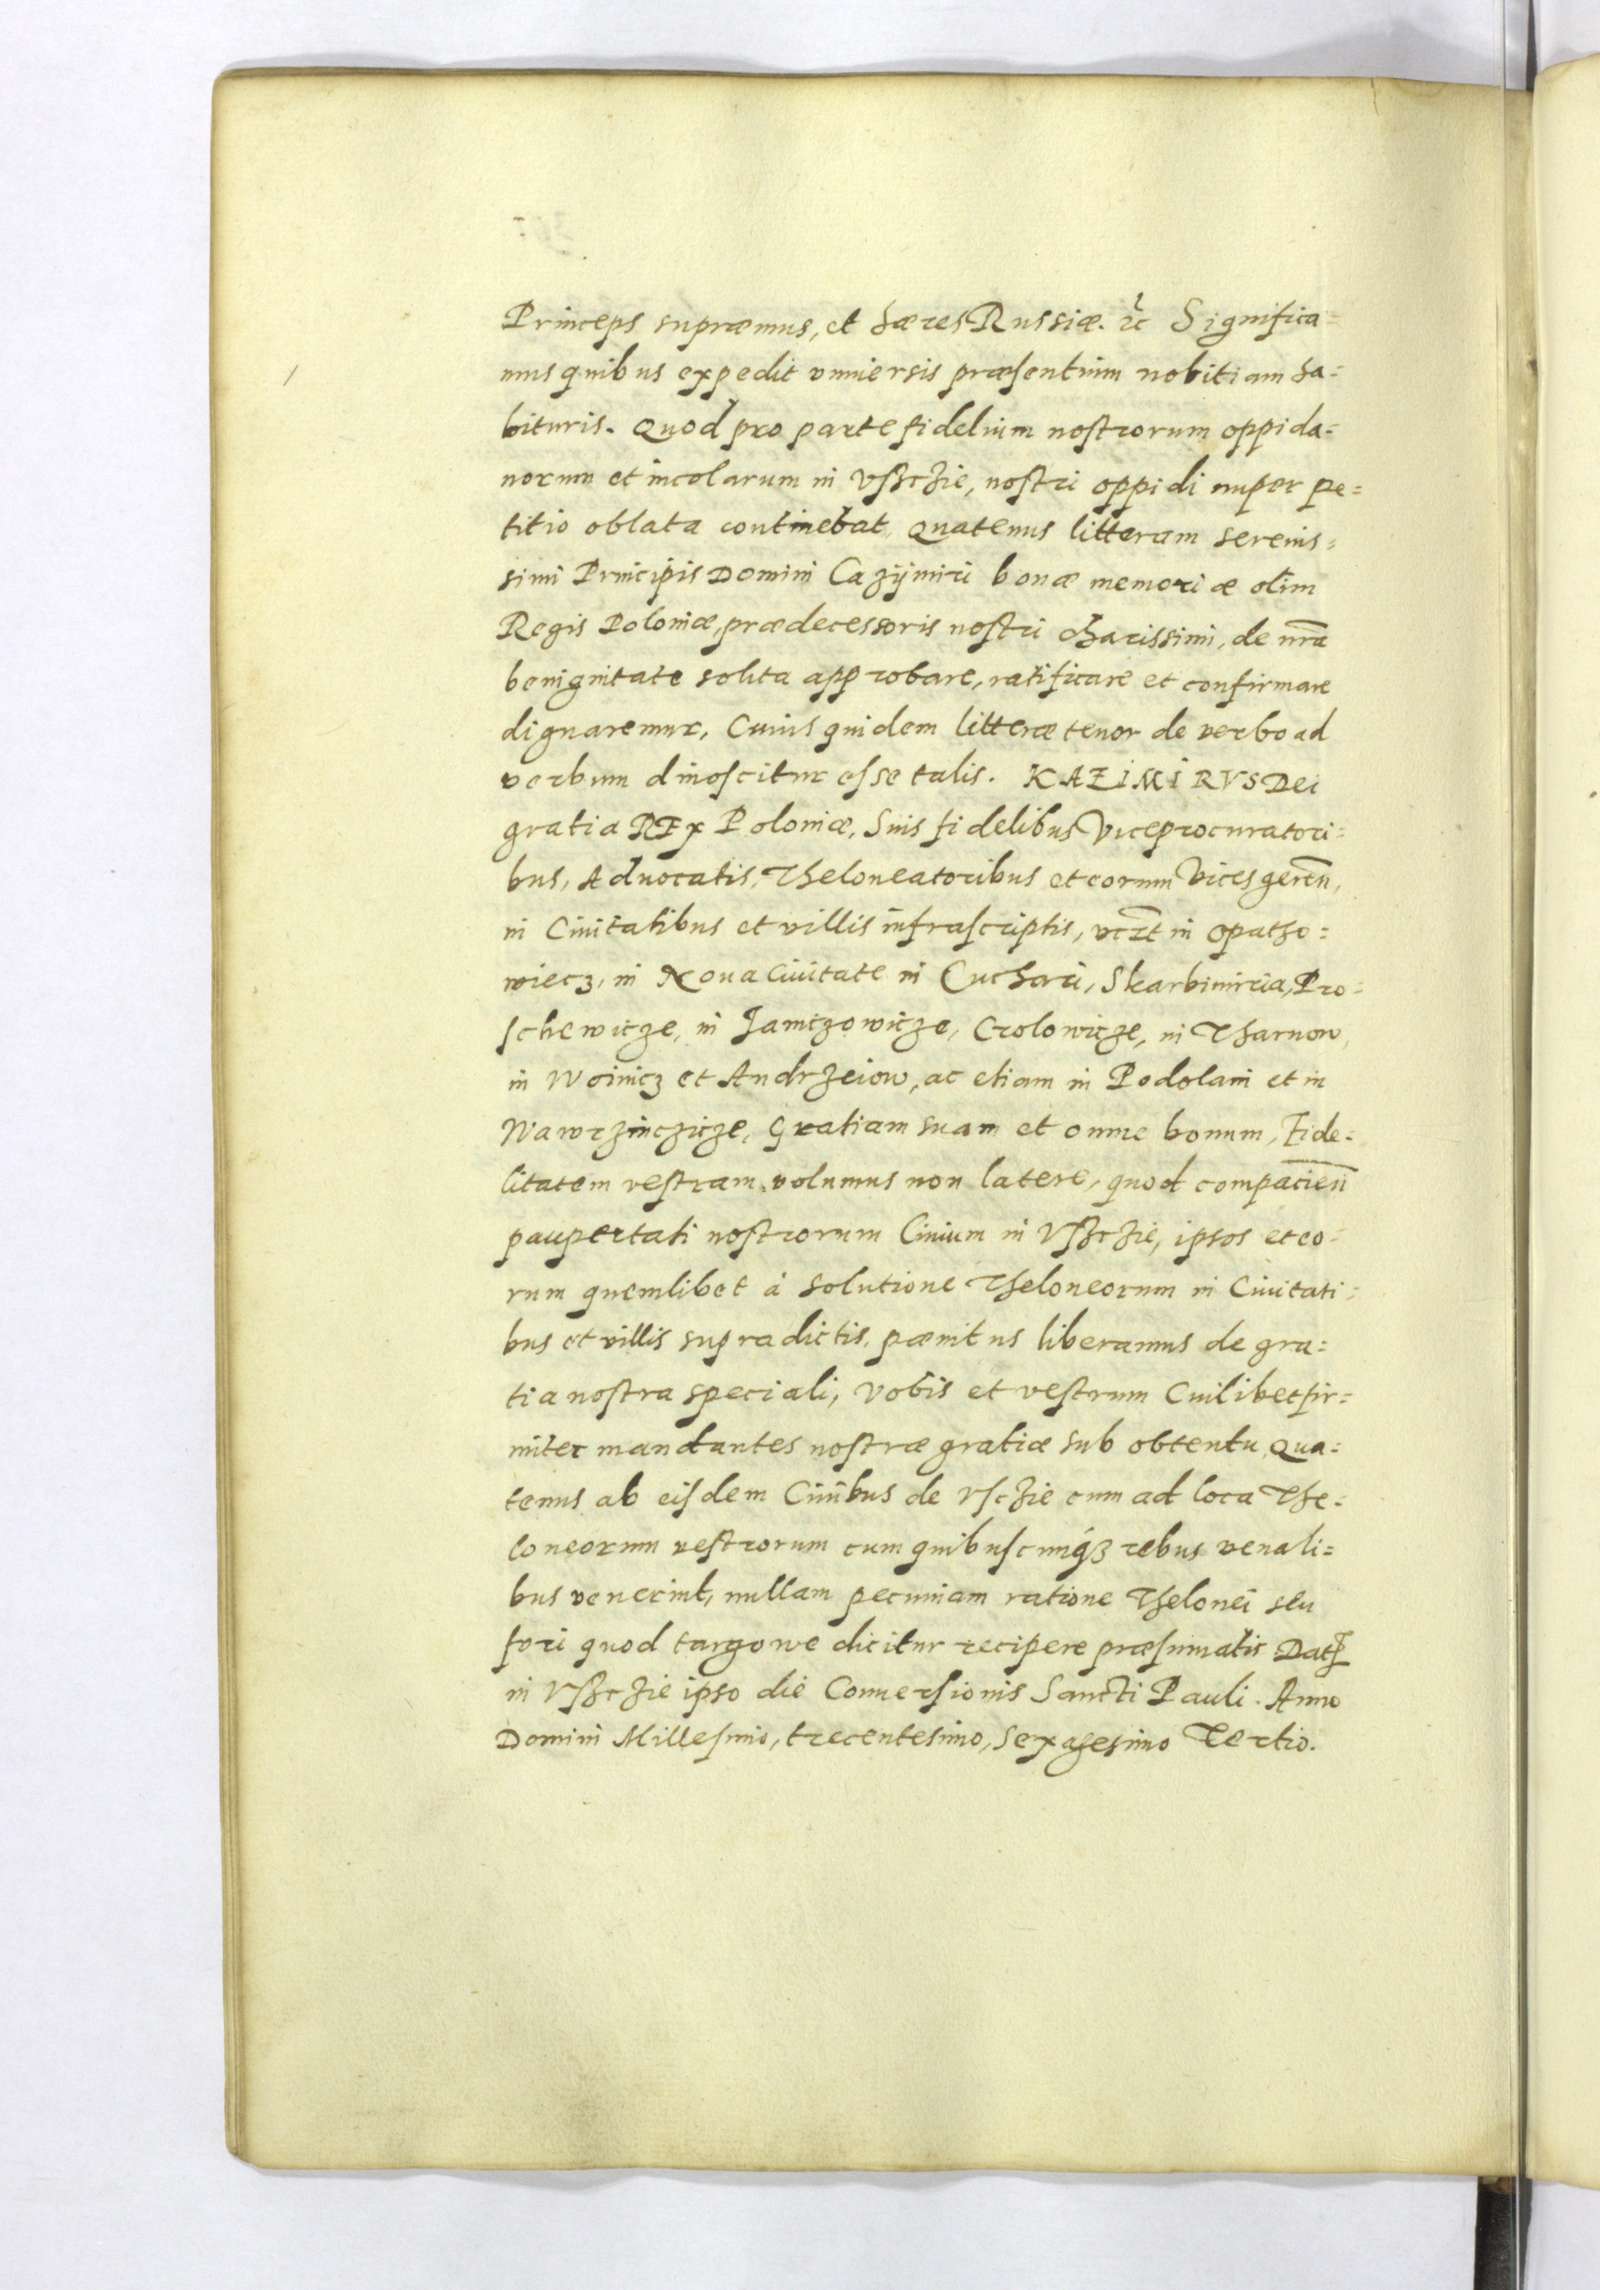 Princeps supræmus, et hæres Russiæ. ꝛc Significa=
mus quibus expedit vniuersis præsentium notitiam ha=
bituris. Quod pro parte fidelium nostrorum oppida=
norum et incolarum in Vszczie, nostri oppidi nuper pe=
titio oblata continebat, Quatenus litteram serenis=
simi Principis Domini Cazijmiri bonæ memoriæ olim
Regis Poloniæ, prædecessoris nostri charissimi, de nrã
benignitate solita approbare, ratificare et confirmare
dignaremur, Cuius quidem litteræ tenor de verbo ad
verbum dinoscitur esse talis. KAZIMIRVS Dei
gratia REx Poloniæ, Suis fidelibus Viceprocuratori=
bus, Aduocatis, Theloneatoribus et eorum Vices gereñ,
in Ciuitatibus et villis infrascriptis, vczt in Opatho=
wiecz, in Noua Ciuitate in Cuchari, Skarbimiria, Pro=
schewicze, in Jamczowicze, Crolowicze, in Tharnow,
in Woinicz et Andrzeiow, ac etiam in Podolain et in
Wawrzinczicze, Gratiam suam et omne bonum, Fide=
litatem vestram volumus non latere, quod compacieñ
paupertati nostrorum Ciuium in Vszczie, ipsos et eo=
rum quemlibet à solutione Theloneorum in Ciuitati=
bus et villis supradictis, pænitus liberamus de gra=
tia nostra speciali, Vobis et vestrum Cuilibet fir=
miter mandantes nostræ gratiæ sub obtentu, Qua=
tenus ab eisdem Ciuibus de Vsczie cum ad loca The=
loneorum vestrorum cum quibuscunqꝫ rebus venali=
bus venerint, nullam pecuniam ratione Thelonei seu
fori quod targowe dicitur recipere præsumatis Datꝭ
in Vszczie ipso die Conuersionis Sancti Pauli. Anno
Domini Millesimo, trecentesimo, Sexagesimo Tertio.